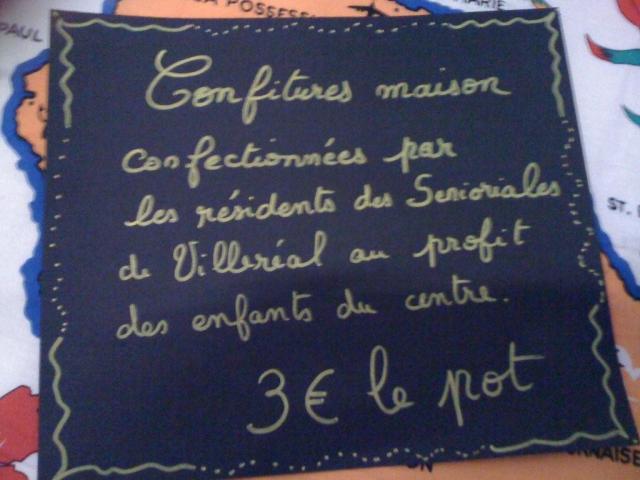 PAUL
LA POSSESS
MARIE
Confitures maison
confectionnées par
les résidents des Senioriales
de Villeréal au profit
des enfants du centre.
3 € le pot
ST.